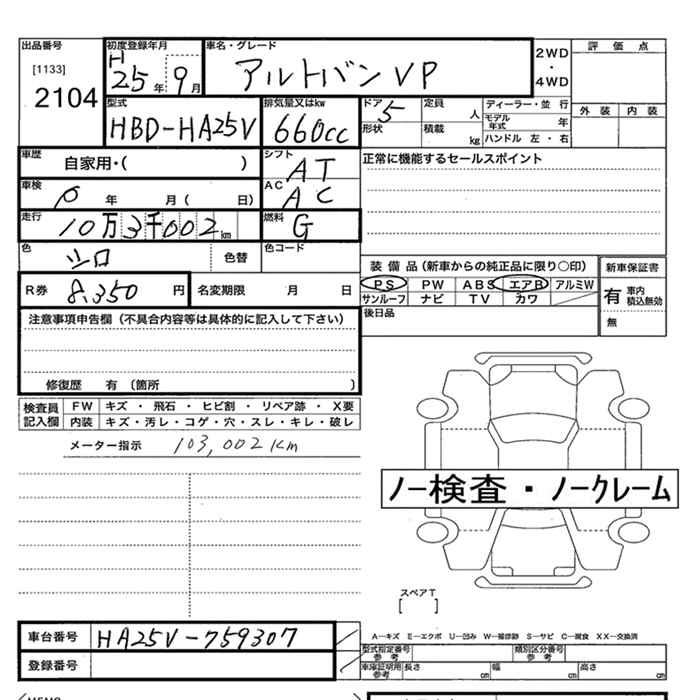 出品番号 初度登録年月 車名・グレード 2WD ・ 4WD 評価点
[1133]
2104
H 25年 9月
アルトバン VP
外装 内装
型式 HBD-HA25V
排気量又はkw 660cc
ドア 5 定員 人 ディーラー・並行
形状 積載 kg モデル年式 年
ハンドル 左・右
車歴 自家用・( )
シフト AT
正常に機能するセールスポイント
車検 年 月( 日)
AC AC
走行 10万3千002km
燃料 G
色 シロ 色替 色コード
装備品(新車からの純正品に限り○印) 新車保証書
R券 8,350 円 名変期限 月 日
PS PW ABS エアB アルミW
サンルーフ ナビ TV カワ
有 車内積込無効
無
後日品
注意事項申告欄(不具合内容等は具体的に記入して下さい)
修復歴 有 〔箇所 〕
検査員記入欄 FW キズ・飛石・ヒビ割・リペア跡・X要
内装 キズ・汚レ・コゲ・穴・スレ・キレ・破レ
メーター指示 103,002Km
ノー検査・ノークレーム
スペアT
[ ]
車台番号 HA25V-759307
登録番号
A―キズ E―エクボ U―凹み W―補修跡 S―サビ C―腐食 XX―交換済
型式指定番号 参考 類別区分番号 参考
車庫証明用 参考 長さ cm 幅 cm 高さ cm